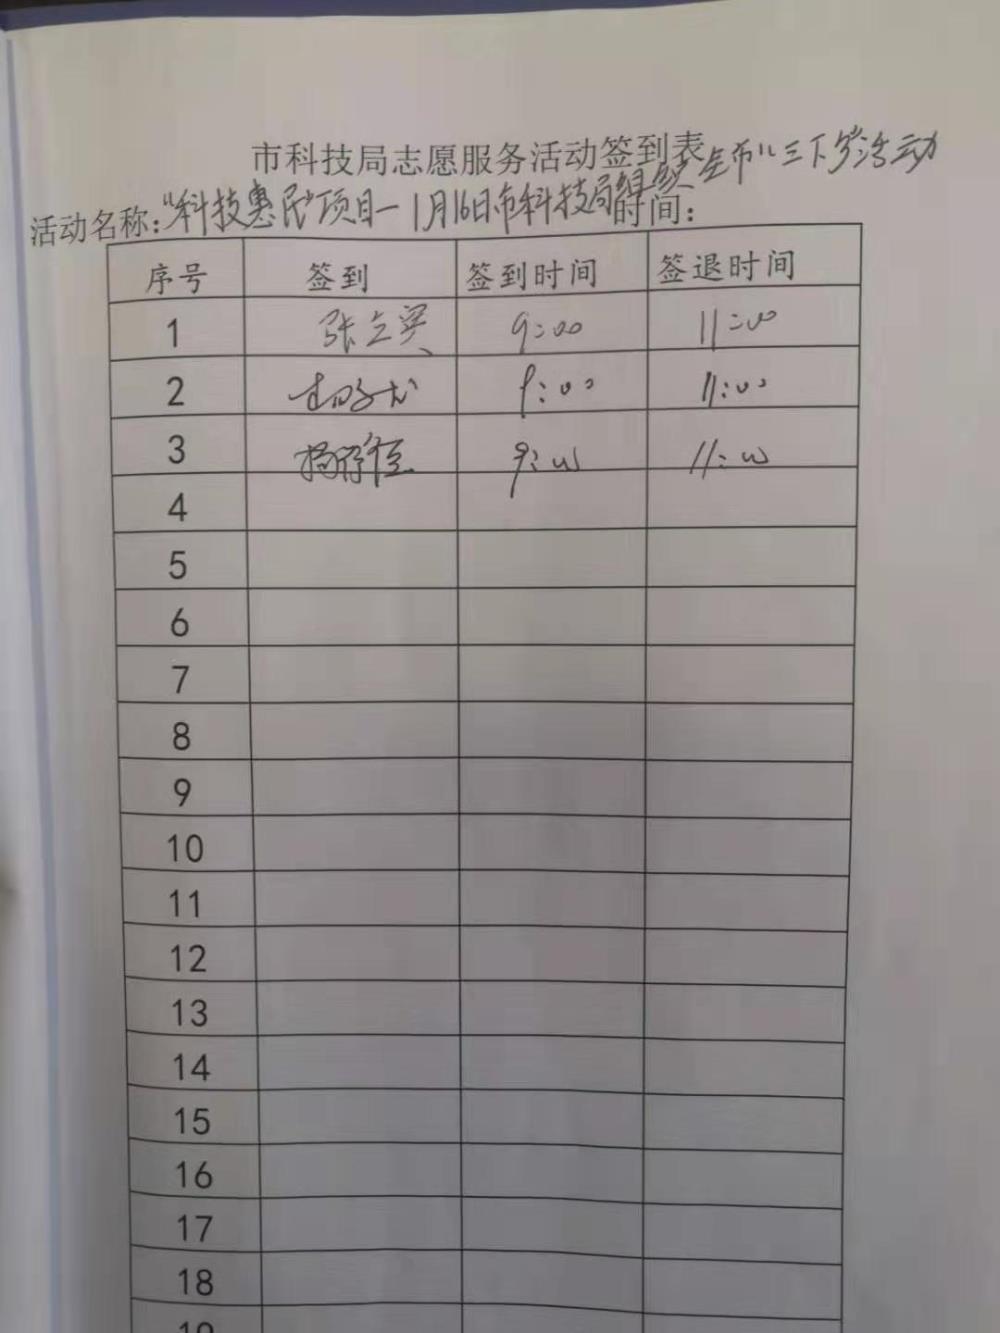 市科技局志愿服务活动签到表
活动名称:“科技惠民”项目—1月16日市科技局组织全市“三下乡”活动 时间:
序号 签到 签到时间 签退时间
1 张立英 9:00 11:00
2 9:00 11:00
3 9:00 11:00
4
5
6
7
8
9
10
11
12
13
14
15
16
17
18
19